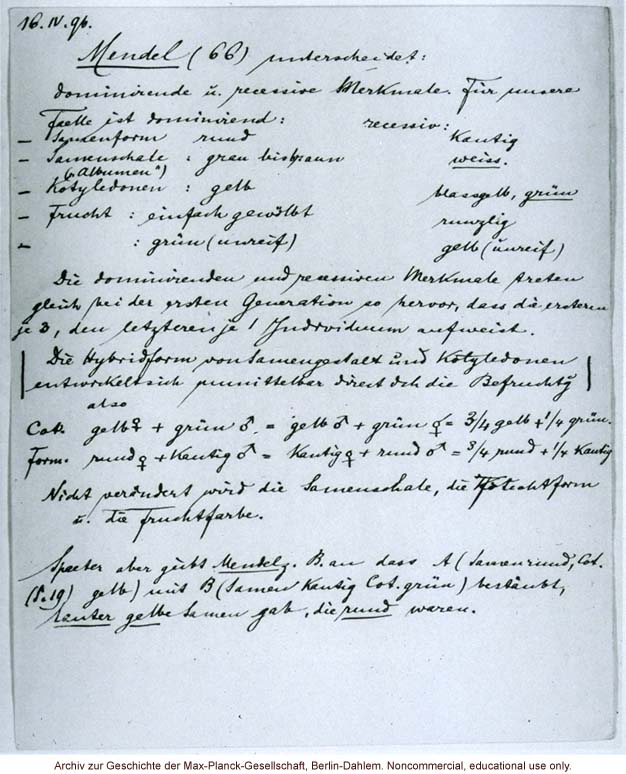 16. IV. 96.
Mendel (66) unterscheidet:
dominirende u. recessive Merkmale. Für unsere
Faelle ist dominirend: recessiv:
– Samenform rund Kantig
– Samenschale : grau bisbraun weiss.
("Albumen")
– Kotyledonen : gelb blassgelb, grün
– Frucht : einfach gewölbt runzlig
– : grün (unreif) gelb (unreif)
Die dominirenden und recessiven Merkmale treten
gleich bei der ersten Generation so hervor, dass die ersteren
je 3, den letzteren je 1 Individuum aufweist.
Die Hybridform von Samengestalt und Kotyledonen
entwickelt sich unmittelbar direct dch die Befruchtg
also
Cot. gelb ♀ + grün ♂ = gelb ♂ + grün ♀ = 3/4 gelb + 1/4 grün.
Form. rund ♀ + Kantig ♂ = Kantig ♀ + rund ♂ = 3/4 rund + 1/4 Kantig
Nicht verändert wird die Samenschale, die
u. die Fruchtfarbe.
Spaeter aber giebt Mendel z. B. an dass A (Samen rund, Cot.
(S. 19) gelb) mit B (Samen Kantig Cot. grün) bestäubt,
lauter gelbe Samen gab, die rund waren.
Archiv zur Geschichte der Max-Planck-Gesellschaft, Berlin-Dahlem. Noncommercial, educational use only.